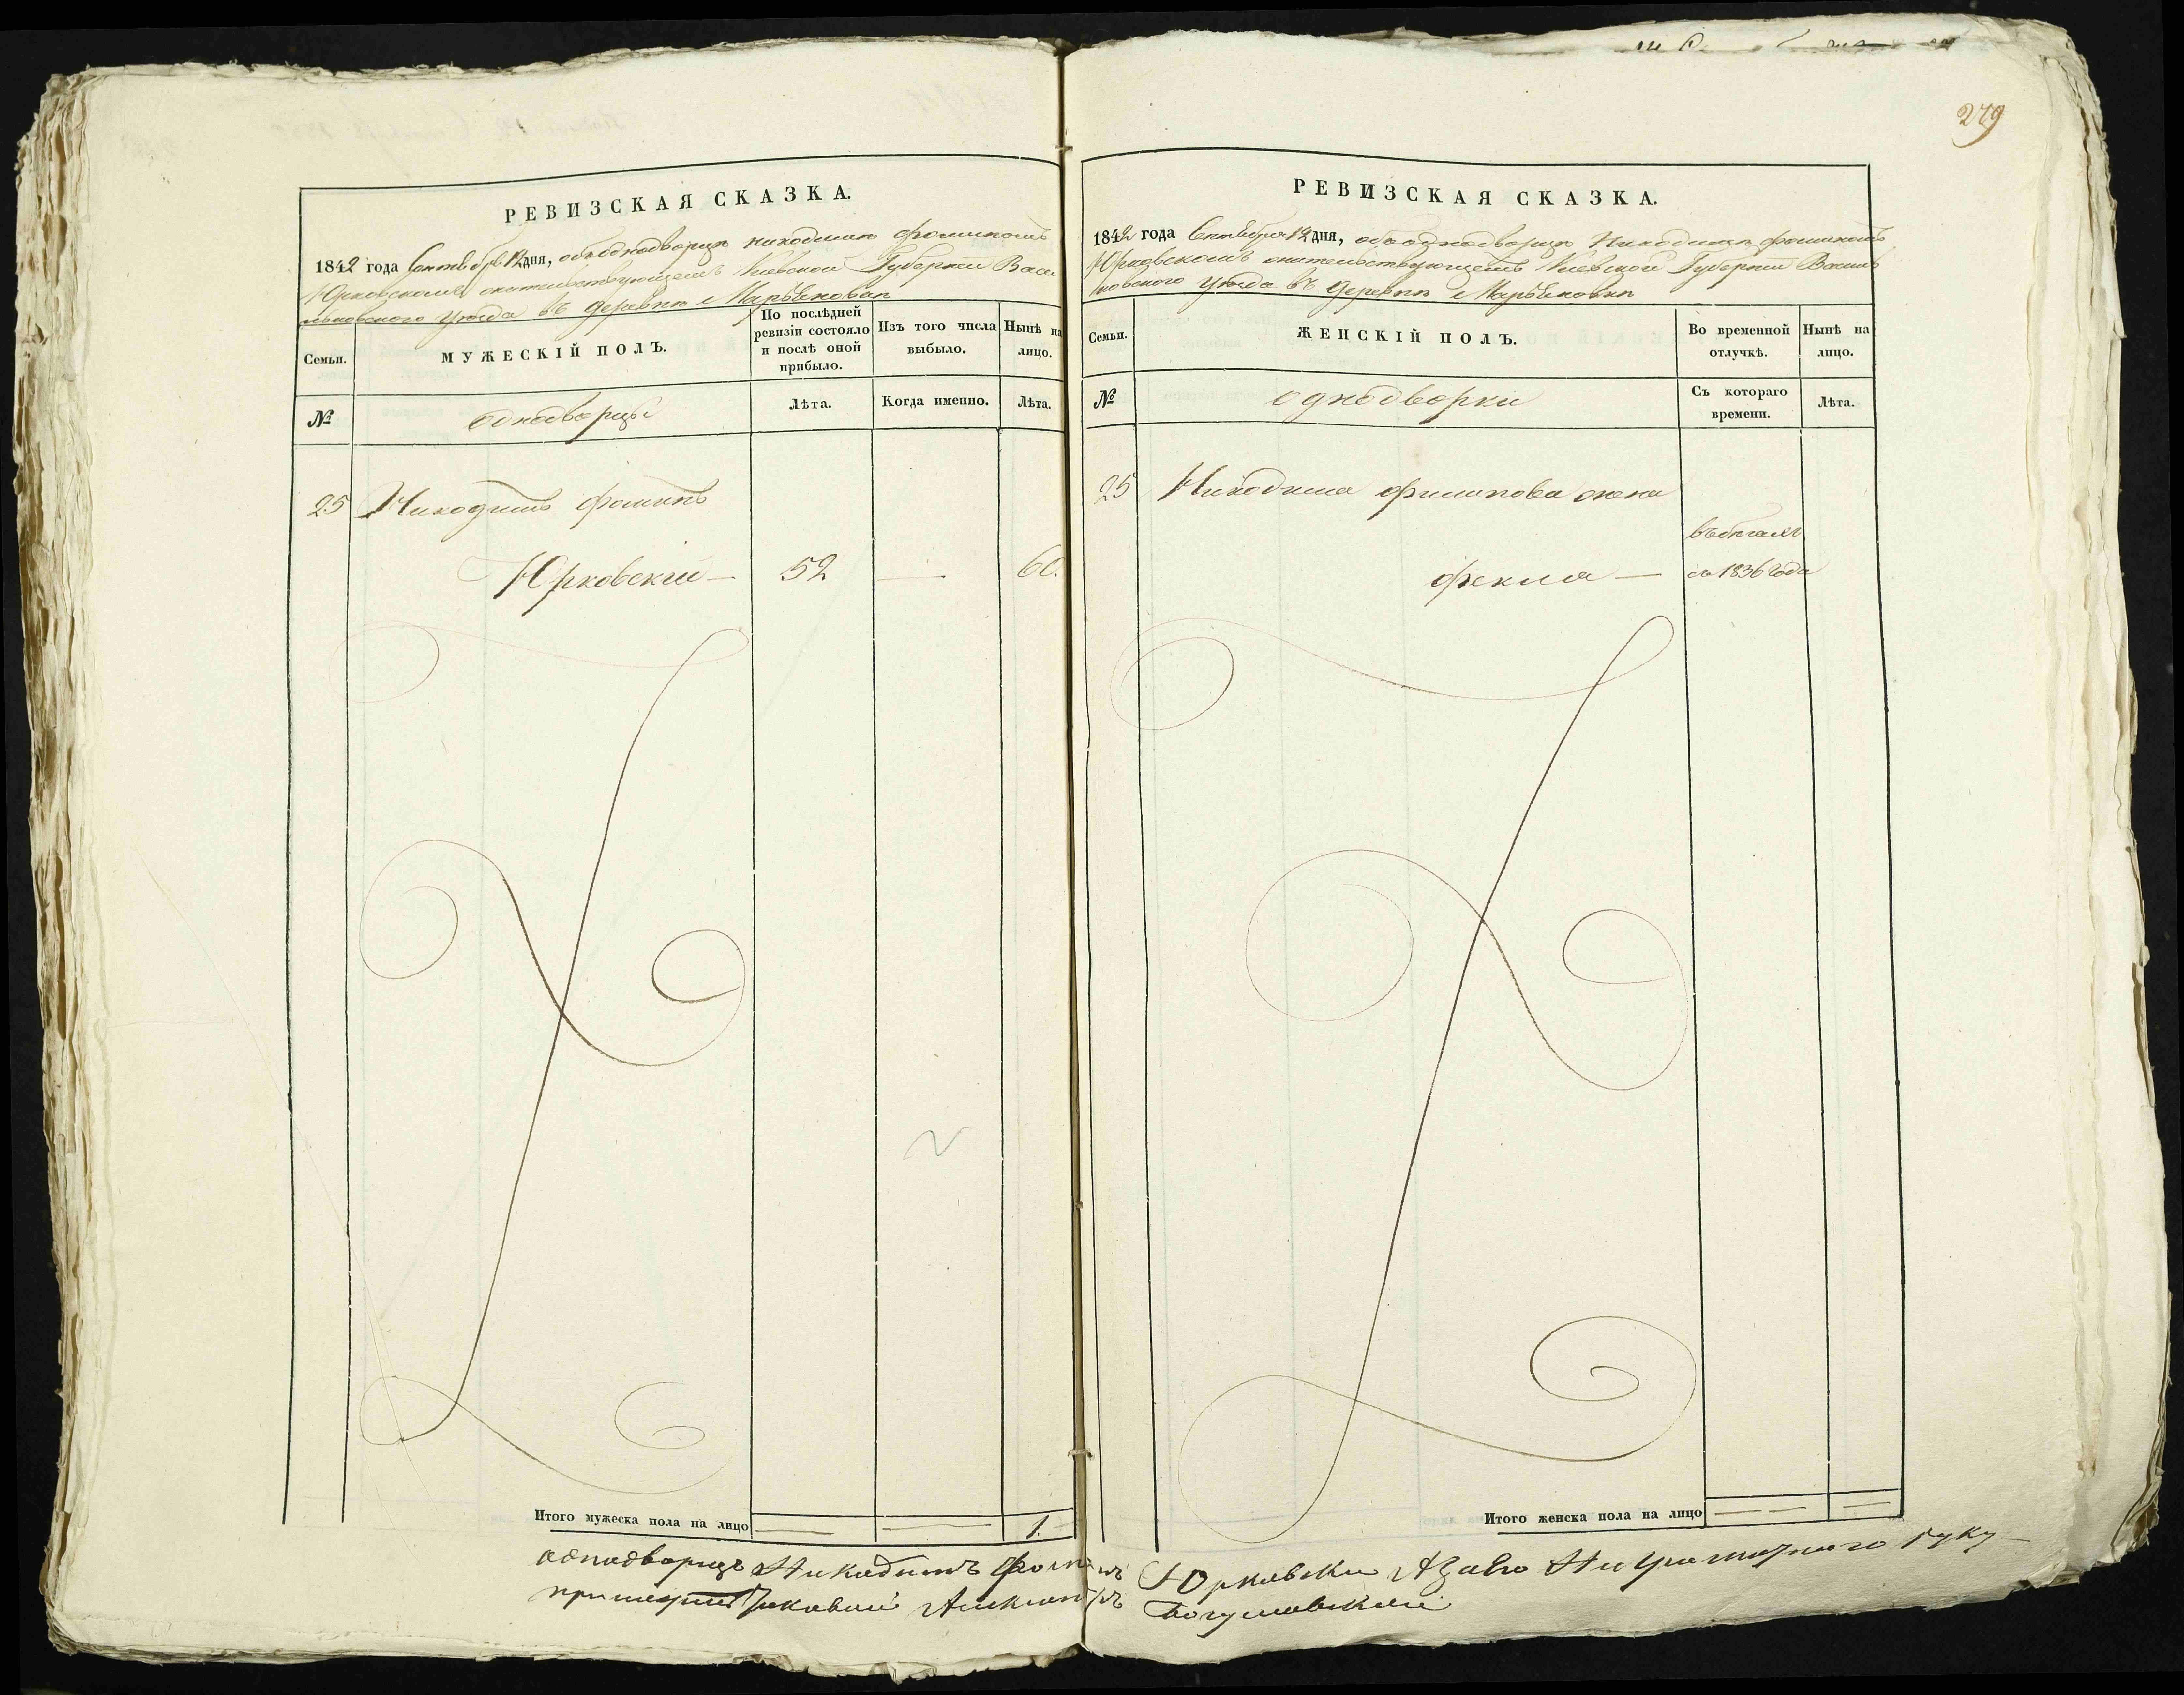 279
РЕВИЗСКАЯ СКАЗКА.
1842 года Сентября 12 дня, объ однодворцѣ Никодимѣ Фоминомъ
Юрковскомъ жительствующемъ Кіевской Губерніи Васи
льковскаго уѣзда въ деревнѣ Марьяновкѣ
Семьи.
МУЖЕСКІЙ ПОЛЪ.
По послѣдней ревизіи состояло и послѣ оной прибыло.
Изъ того числа выбыло.
Нынѣ на лицо.
№
однодворцы
Лѣта.
Когда именно.
Лѣта.
25 Никодимъ Фоминъ
Юрковскій — 52 — 60.
Итого мужеска пола на лицо — — 1.
РЕВИЗСКАЯ СКАЗКА.
1842 года Сентября 12 дня, объ однодворцѣ Никодимѣ Фоминомъ
Юрковскомъ жительствующемъ Кіевской Губерніи Василь
ковского уѣзда въ деревнѣ Марьяновкѣ
Семьи.
ЖЕНСКІЙ ПОЛЪ.
Во временной отлучкѣ.
Нынѣ на лицо.
№
однодворки
Съ котораго времени.
Лѣта.
25 Никодима жена
въ бѣгахъ
Фекла — съ 1836 года
Итого женска пола на лицо — —
однодворецъ Никодимъ Фоминъ Юрковски А за его Неграмотного руку
Богуславский